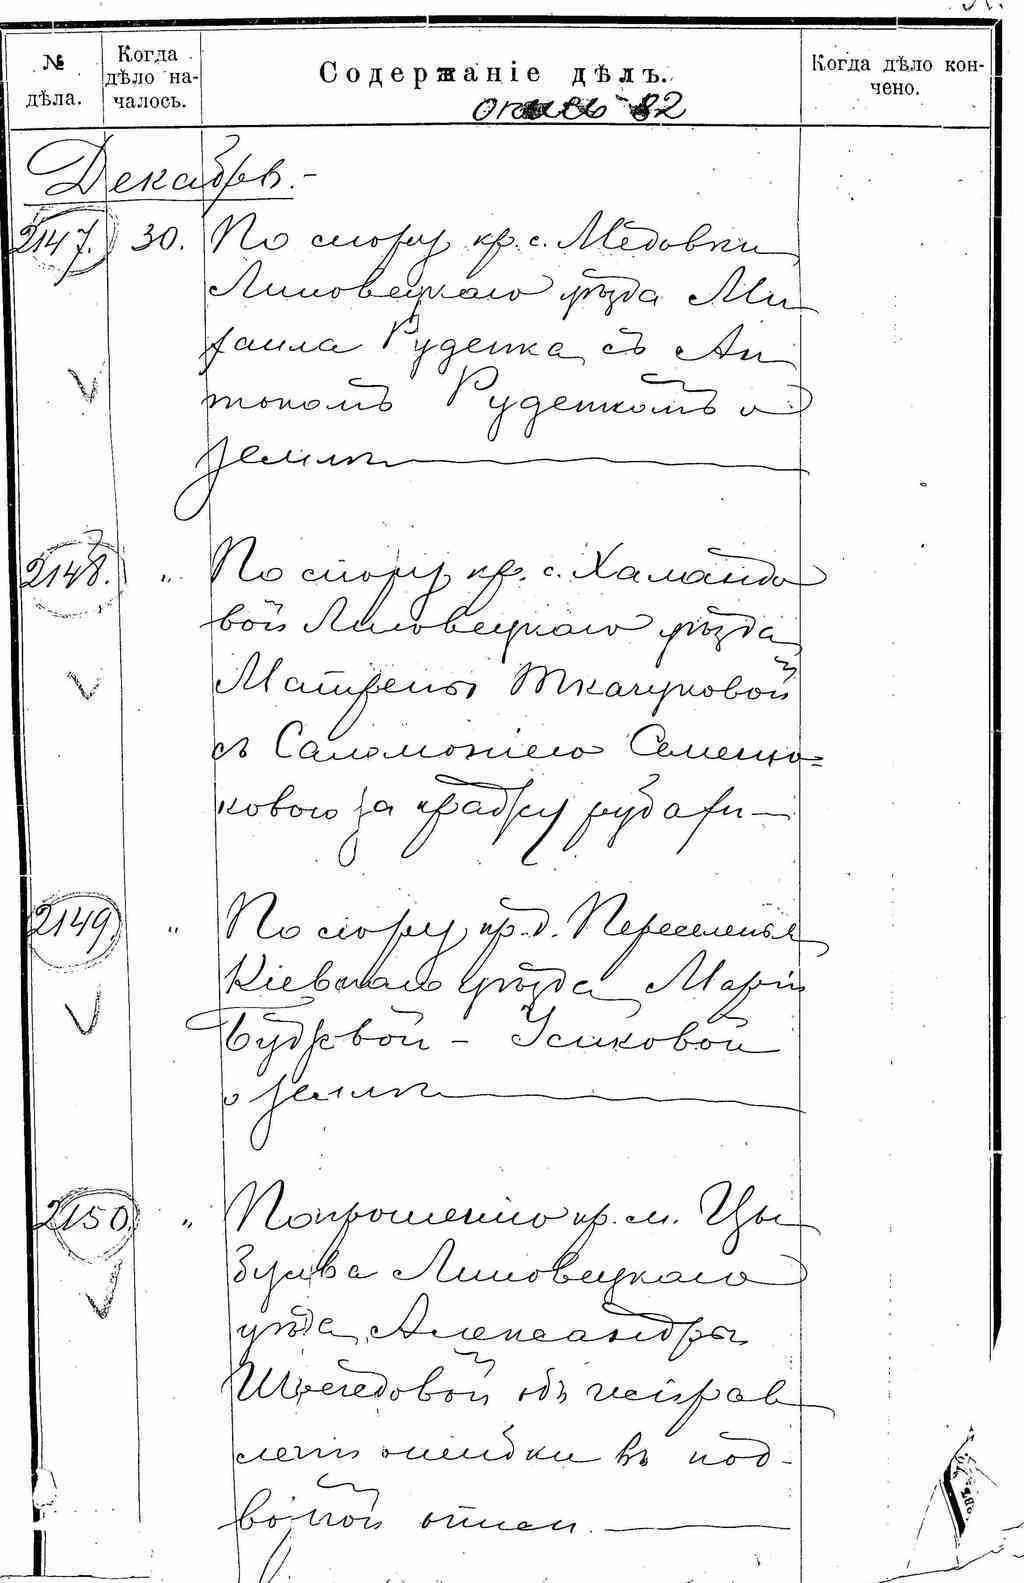 № дѣла.
Когда дѣло на-
чалось.
Содержаніе дѣлъ.
Когда дѣло кон-
чено.
опись 82
Декабрь.-
2147. 30. По спору кр. с. Медовки
Липовецкаго уѣзда Ми
хаила Руденка съ Ан
тономъ Руденкомъ о
землѣ
2148. " По спору кр. с.
вой Липовецкаго уѣзда
Матрены Ткачуковой
съ Саломоніею
ковою за усадьбу
2149. " По спору кр. д. Переселенья
Кіевскаго уѣзда Маріи
Усиковой
о землѣ
2150. " По прошенію кр. м. Цы
булева Липовецкаго
уѣзда, Александры
объ исправ
леніи ошибки въ под-
ворной описи.